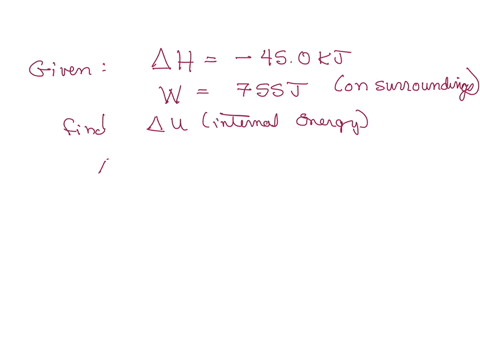 Given: ΔH = -45.0 KJ
W = 755J (on surroundings)
find ΔU (internal energy)